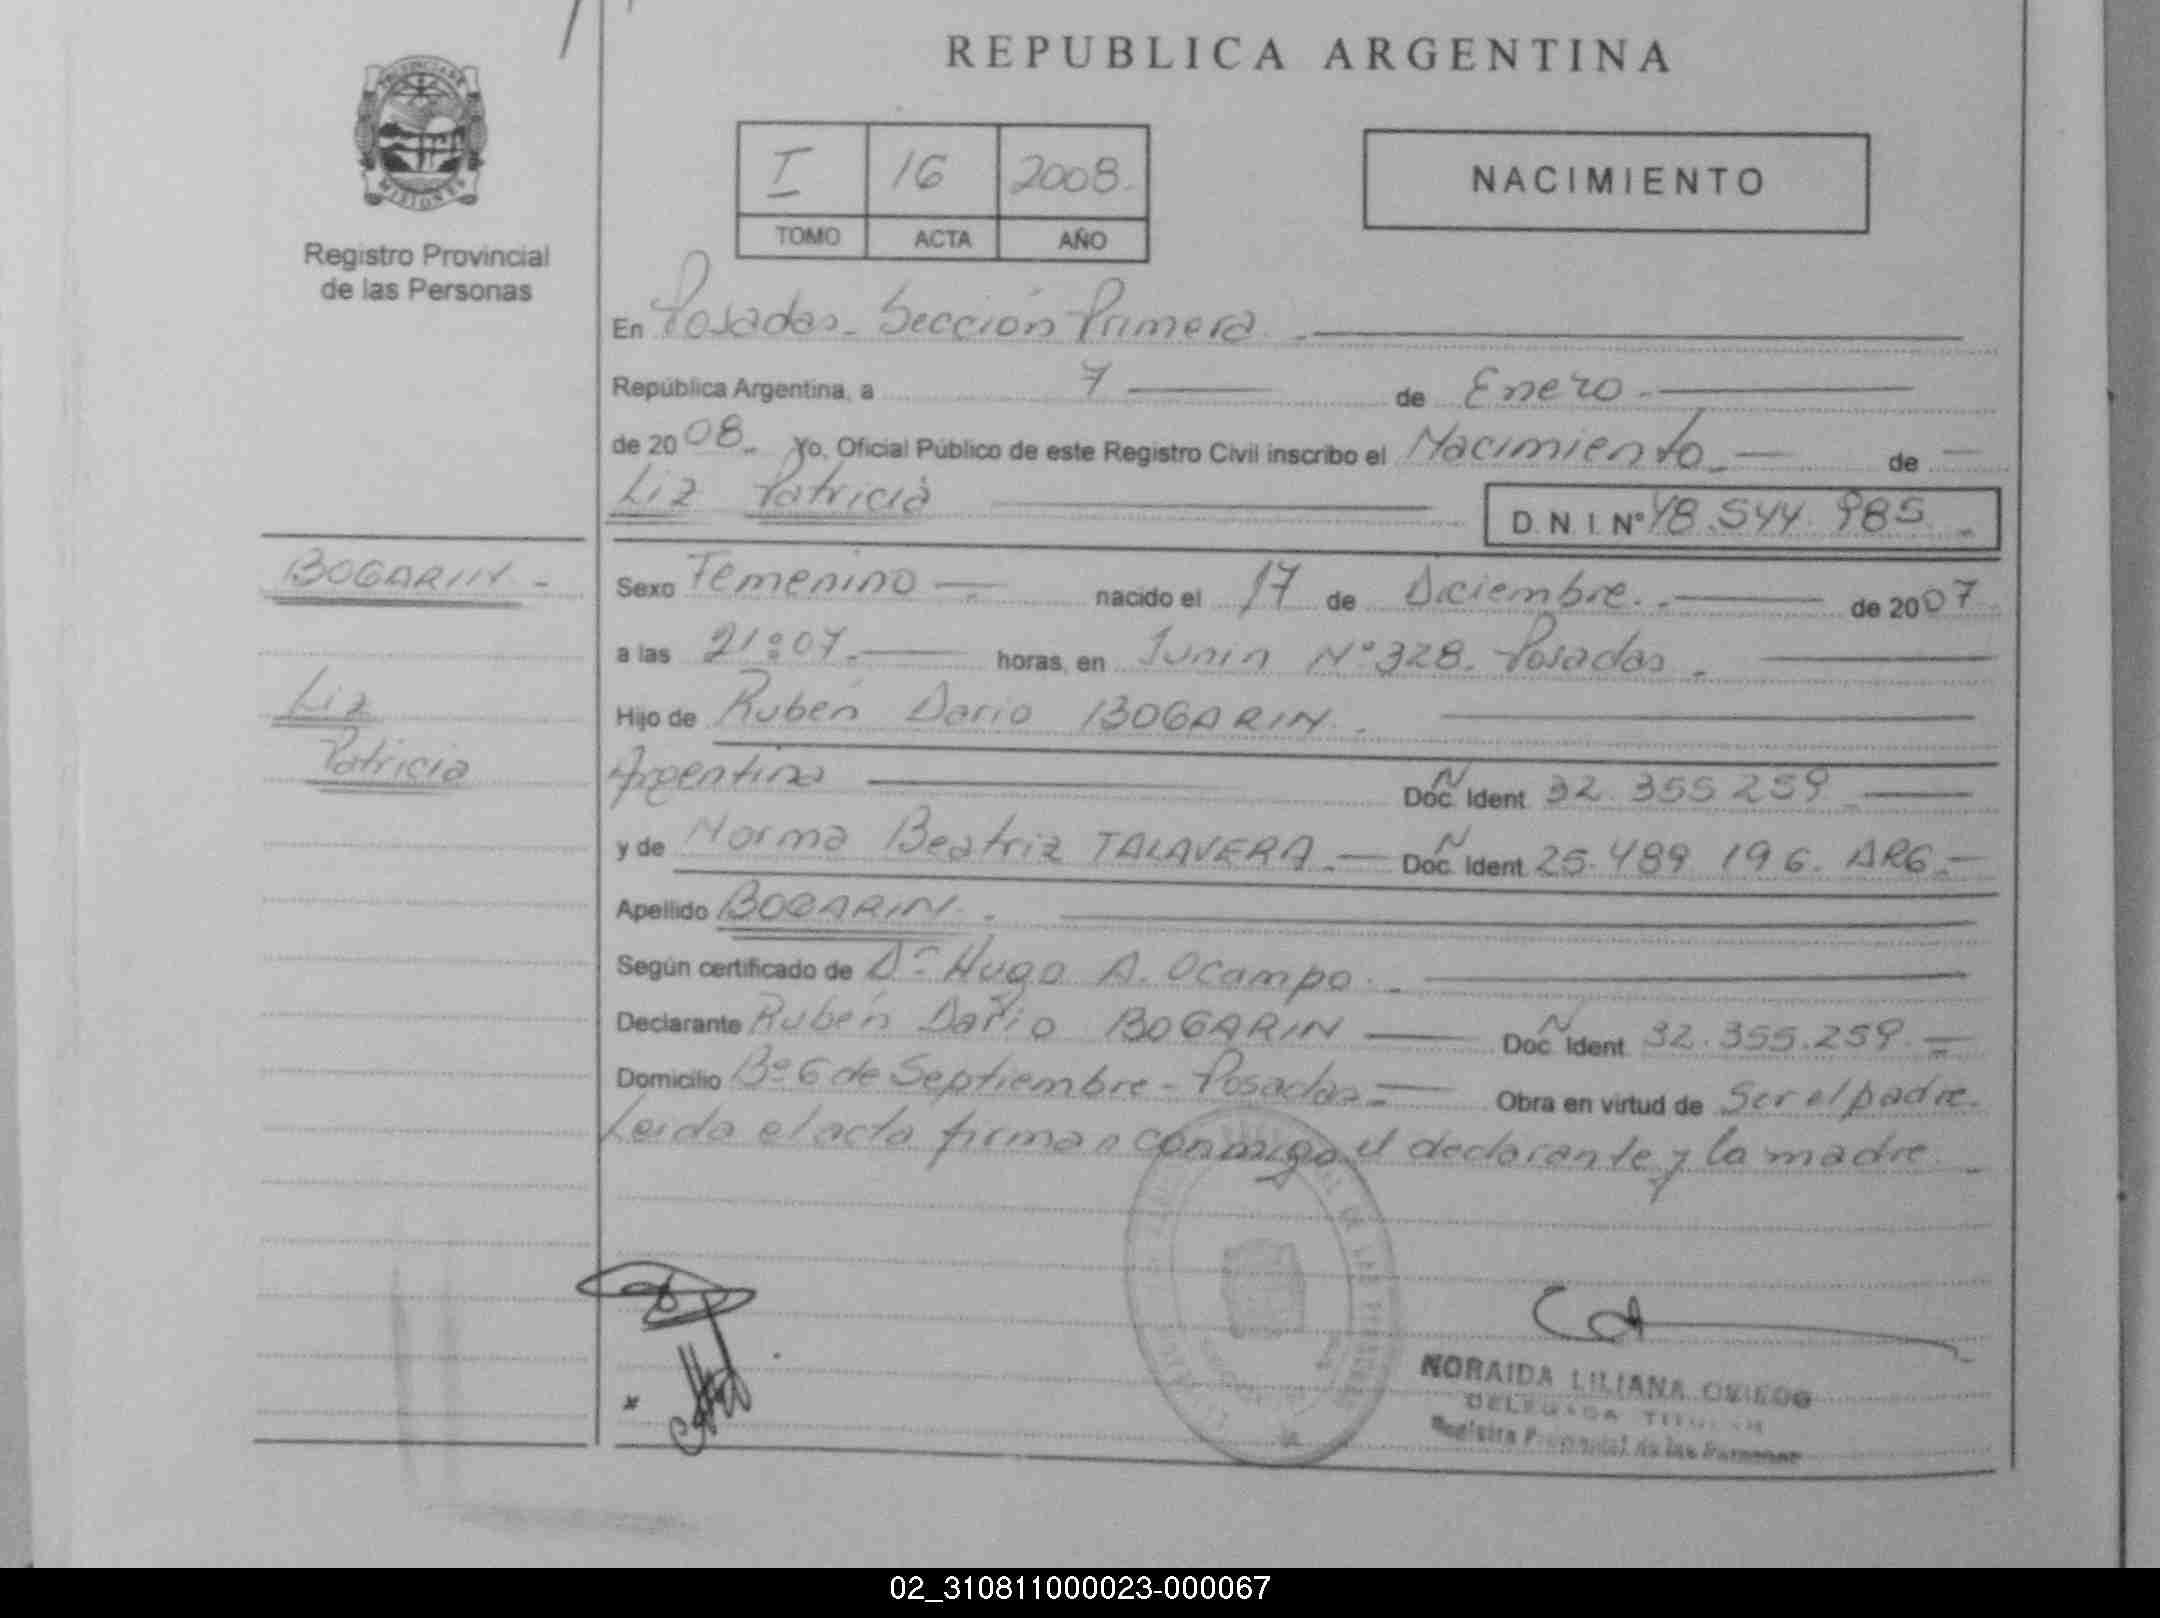 REPUBLICA ARGENTINA
PROVINCIA DE
MISIONES
Registro Provincial
de las Personas
I 16 2008.
TOMO ACTA AÑO
NACIMIENTO
En Posadas. Sección Primera.
República Argentina, a 7 de Enero.
de 2008. Yo, Oficial Público de este Registro Civil inscribo el Nacimiento. de
Liz Patricia D. N. I. Nº 48.544.985.
BOGARIN.
Liz
Patricia
Sexo Femenino nacido el 17 de Diciembre. de 2007
a las 21:07. horas, en Junin Nº 328. Posadas.
Hijo de Rubén Dario BOGARIN.
Argentina Doc. N Ident 32.355.259
y de Norma Beatriz TALAVERA. Doc. N Ident 25.489.196. ARG.
Apellido BOGARIN.
Según certificado de Dr Hugo A. Ocampo.
Declarante Rubén Dario BOGARIN Doc. N Ident 32.355.259.
Domicilio Bº 6 de Septiembre - Posadas. Obra en virtud de Ser el padre.
Leida el acta firman conmigo el declarante y la madre
NORAIDA LILIANA OVIEDO
DELEGADA TITULAR
Registro Provincial de las Personas
02_310811000023-000067